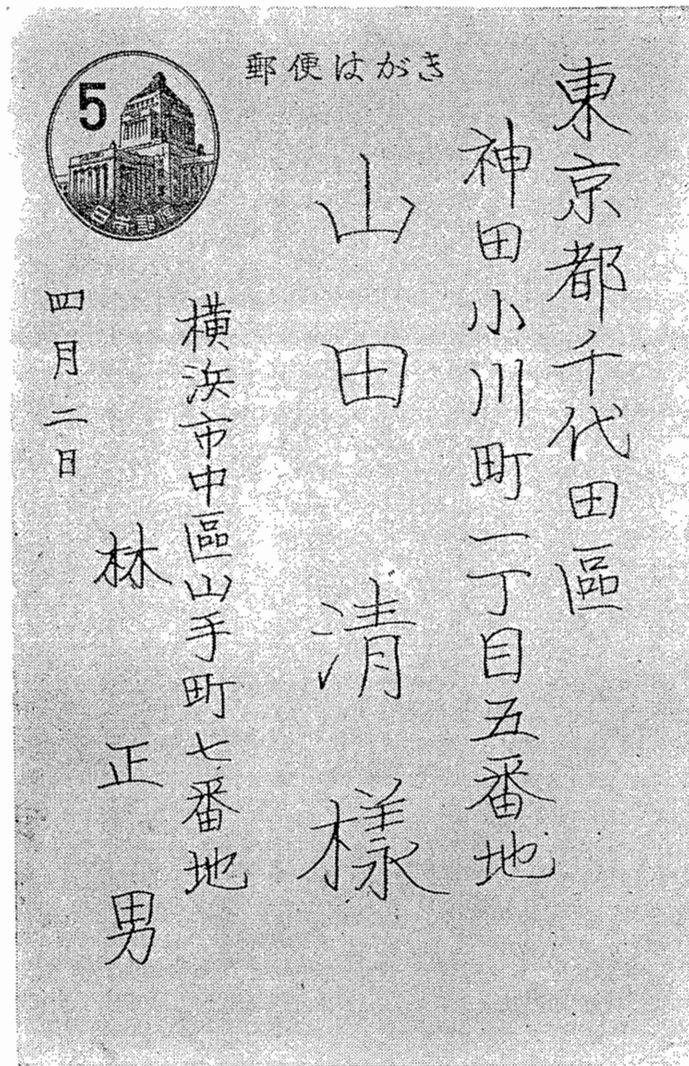 郵便はがき
5
日本郵便
東京都千代田區
神田小川町二丁目五番地
山田清樣
横浜市中區山手町七番地
林正男
四月二日